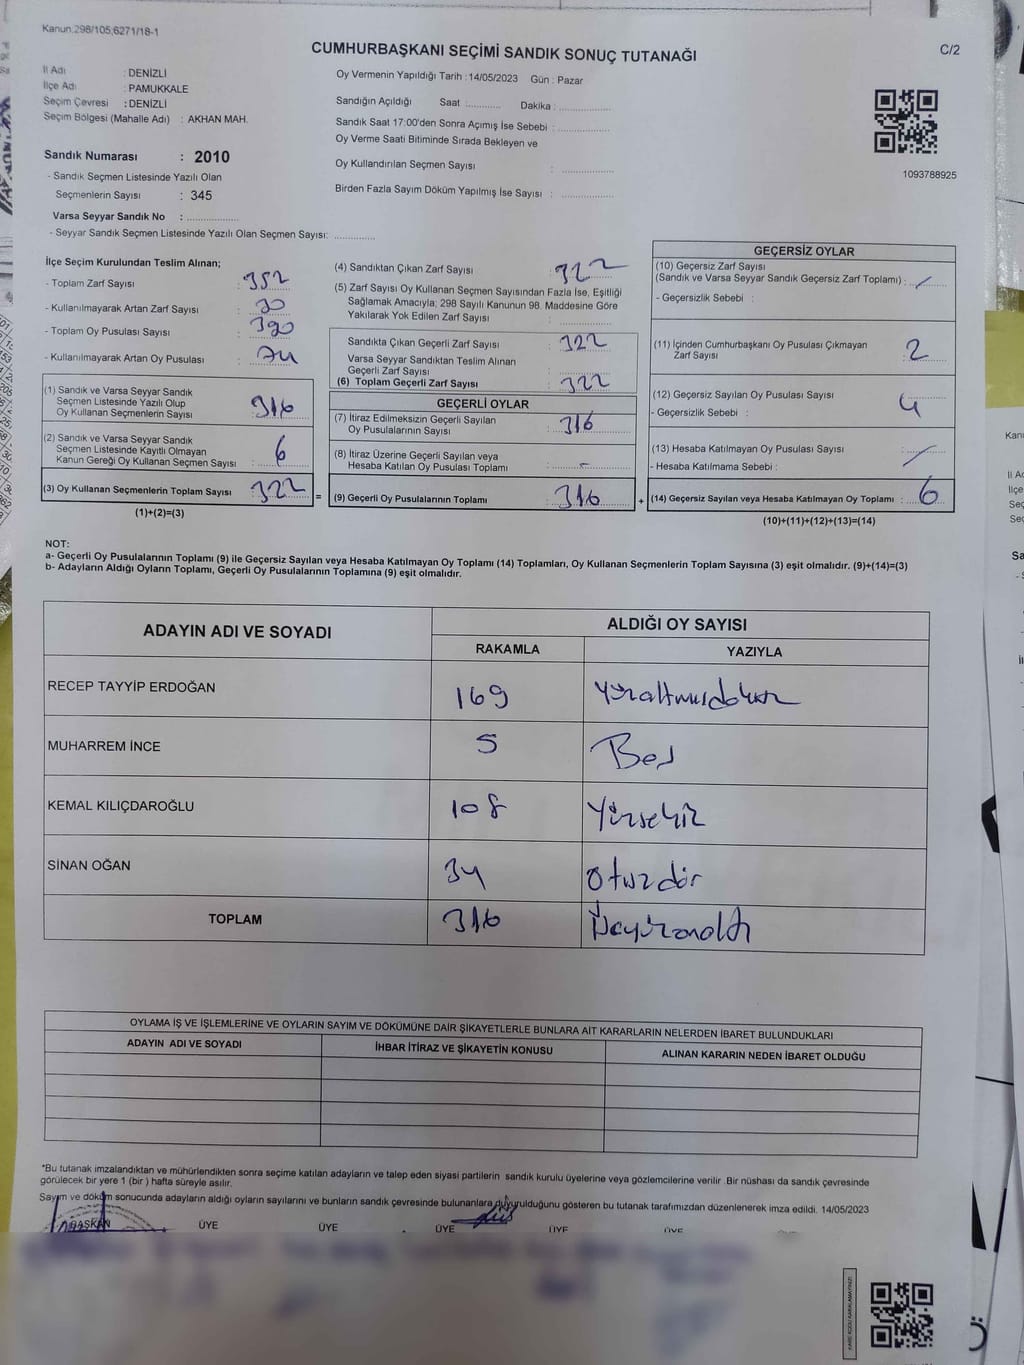 Kanun.298/105;6271/18-1
CUMHURBAŞKANI SEÇİMİ SANDIK SONUÇ TUTANAĞI
C/2
İl Adı : DENİZLİ
İlçe Adı : PAMUKKALE
Seçim Çevresi : DENİZLİ
Seçim Bölgesi (Mahalle Adı) : AKHAN MAH.
Sandık Numarası : 2010
- Sandık Seçmen Listesinde Yazılı Olan
Seçmenlerin Sayısı : 345
Varsa Seyyar Sandık No : ..................
- Seyyar Sandık Seçmen Listesinde Yazılı Olan Seçmen Sayısı: ..............
Oy Vermenin Yapıldığı Tarih : 14/05/2023 Gün : Pazar
Sandığın Açıldığı Saat :............ Dakika : ..................
Sandık Saat 17:00'den Sonra Açımış İse Sebebi : ..................
Oy Verme Saati Bitiminde Sırada Bekleyen ve
Oy Kullandırılan Seçmen Sayısı : ..................
Birden Fazla Sayım Döküm Yapılmış İse Sayısı : ..................
1093788925
İlçe Seçim Kurulundan Teslim Alınan;
- Toplam Zarf Sayısı : 352
- Kullanılmayarak Artan Zarf Sayısı : 30
- Toplam Oy Pusulası Sayısı : 390
- Kullanılmayarak Artan Oy Pusulası :
(1) Sandık ve Varsa Seyyar Sandık
Seçmen Listesinde Yazılı Olup
Oy Kullanan Seçmenlerin Sayısı : 316
(2) Sandık ve Varsa Seyyar Sandık
Seçmen Listesinde Kayıtlı Olmayan
Kanun Gereği Oy Kullanan Seçmen Sayısı : 6
(3) Oy Kullanan Seçmenlerin Toplam Sayısı : 322 =
(1)+(2)=(3)
(4) Sandıktan Çıkan Zarf Sayısı : 322
(5) Zarf Sayısı Oy Kullanan Seçmen Sayısından Fazla İse, Eşitliği
Sağlamak Amacıyla; 298 Sayılı Kanunun 98. Maddesine Göre
Yakılarak Yok Edilen Zarf Sayısı : ..................
Sandıkta Çıkan Geçerli Zarf Sayısı : 322
Varsa Seyyar Sandıktan Teslim Alınan
Geçerli Zarf Sayısı : ..................
(6) Toplam Geçerli Zarf Sayısı : 322
GEÇERLİ OYLAR
(7) İtiraz Edilmeksizin Geçerli Sayılan
Oy Pusulalarının Sayısı : 316
(8) İtiraz Üzerine Geçerli Sayılan veya
Hesaba Katılan Oy Pusulası Toplamı : -
(9) Geçerli Oy Pusulalarının Toplamı : 316 +
GEÇERSİZ OYLAR
(10) Geçersiz Zarf Sayısı
(Sandık ve Varsa Seyyar Sandık Geçersiz Zarf Toplamı) : /
- Geçersizlik Sebebi :
(11) İçinden Cumhurbaşkanı Oy Pusulası Çıkmayan
Zarf Sayısı : 2
(12) Geçersiz Sayılan Oy Pusulası Sayısı : 4
- Geçersizlik Sebebi :
(13) Hesaba Katılmayan Oy Pusulası Sayısı : /
- Hesaba Katılmama Sebebi :
(14) Geçersiz Sayılan veya Hesaba Katılmayan Oy Toplamı : 6
(10)+(11)+(12)+(13)=(14)
NOT:
a- Geçerli Oy Pusulalarının Toplamı (9) ile Geçersiz Sayılan veya Hesaba Katılmayan Oy Toplamı (14) Toplamları, Oy Kullanan Seçmenlerin Toplam Sayısına (3) eşit olmalıdır. (9)+(14)=(3)
b- Adayların Aldığı Oyların Toplamı, Geçerli Oy Pusulalarının Toplamına (9) eşit olmalıdır.
ADAYIN ADI VE SOYADI ALDIĞI OY SAYISI
RAKAMLA YAZIYLA
RECEP TAYYİP ERDOĞAN 169
MUHARREM İNCE 5 Beş
KEMAL KILIÇDAROĞLU 108 Yüzsekiz
SİNAN OĞAN 34 Otuzdör
TOPLAM 316 Üçyüzonaltı
OYLAMA İŞ VE İŞLEMLERİNE VE OYLARIN SAYIM VE DÖKÜMÜNE DAİR ŞİKAYETLERLE BUNLARA AİT KARARLARIN NELERDEN İBARET BULUNDUKLARI
ADAYIN ADI VE SOYADI İHBAR İTİRAZ VE ŞİKAYETİN KONUSU ALINAN KARARIN NEDEN İBARET OLDUĞU
*Bu tutanak imzalandıktan ve mühürlendikten sonra seçime katılan adayların ve talep eden siyasi partilerin sandık kurulu üyelerine veya gözlemcilerine verilir .Bir nüshası da sandık çevresinde
görülecek bir yere 1 (bir ) hafta süreyle asılır.
Sayım ve döküm sonucunda adayların aldığı oyların sayılarını ve bunların sandık çevresinde bulunanlara duyurulduğunu gösteren bu tutanak tarafımızdan düzenlenerek imza edildi. 14/05/2023
BAŞKAN ÜYE ÜYE ÜYE ÜYE ÜYE